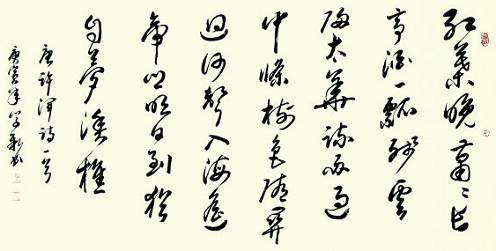 紅葉晚蕭々長
亭酒一瓢殘雲
歸太華疏雨過
中條樹色隨關
迥河聲入海遙
帝鄉明日到猶
自夢漁樵
唐許渾詩一首
庚寅年